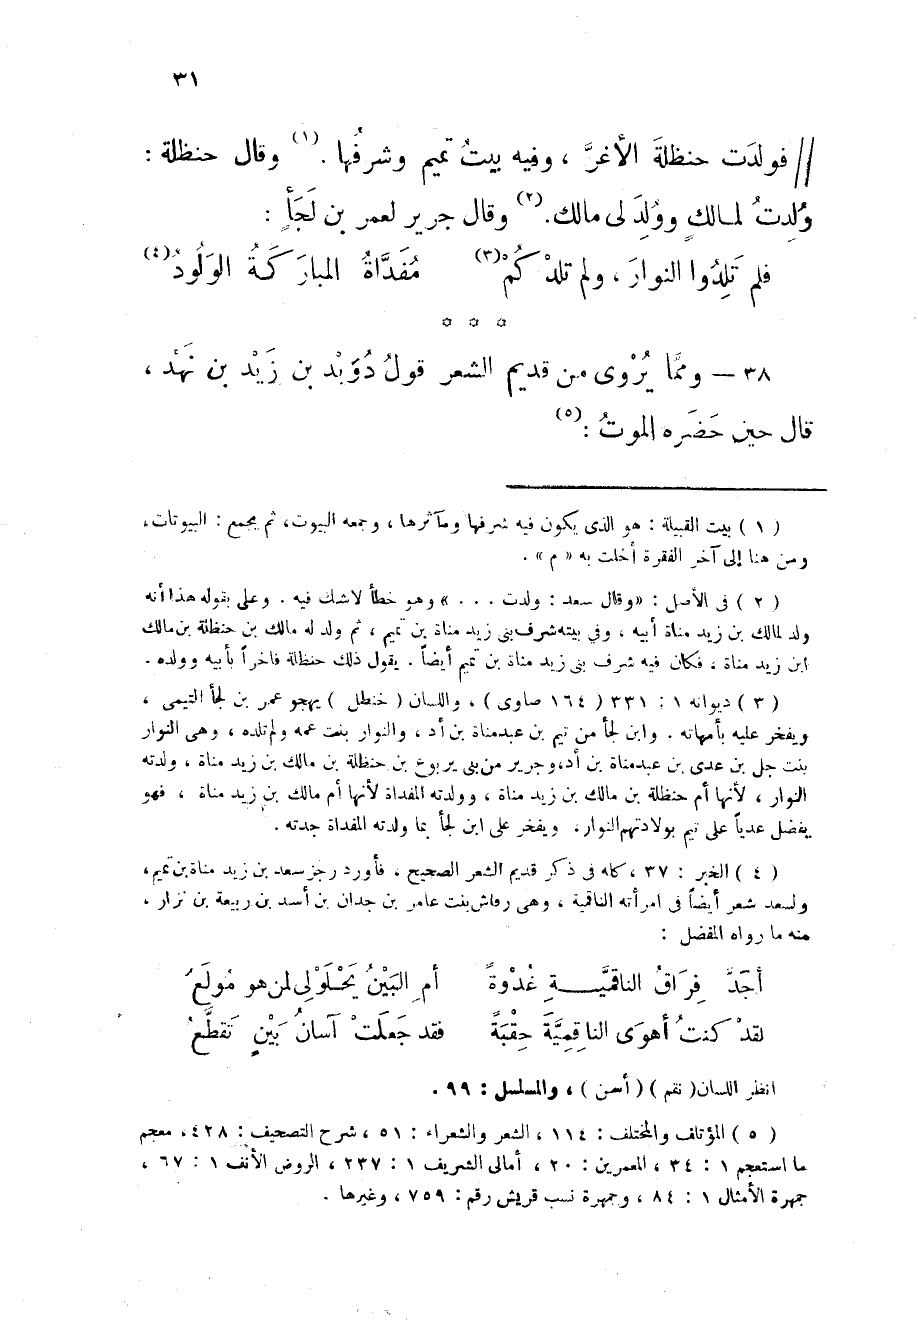 ٣١
// فولدَت حنظلةَ الأغرَّ ، وفيه بيتُ تميم وشرفُها . (١) وقال حنظلة :
وُلِدتُ لمالكٍ ووُلِدَ لى مالك. (٢) وقال جرير لعمر بن لَجَأٍ :
فلم تَلِدُوا النوارَ ، ولم تلدْكُمْ (٣) مُفَدَّاةُ المباركةُ الوَلُودُ (٤)
* * *
٣٨ – وممَّا يُرْوى من قديم الشعر قولُ دُوَيْد بن زَيْد بن نَهْد ،
قال حين حَضَره الموتُ : (٥)
( ١ ) بيت القبيلة : هو الذى يكون فيه شرفها ومآثرها ، وجمعه البيوت، ثم يجمع : البيوتات،
ومن هنا إلى آخر الفقرة أخلت به « م » .
( ٢ ) فى الأصل : «وقال سعد : ولدت . . . » وهو خطأ لاشك فيه . وعلى بقوله هذا أنه
ولد لمالك بن زيد مناة أبيه ، وفي بيته شرف بنى زيد مناة بن تميم ، ثم ولد له مالك بن حنظلة بن مالك
ابن زيد مناة ، فكان فيه شرف بنى زيد مناة بن تميم أيضاً . يقول ذلك حنظلة فاخراً بأبيه وولده .
( ٣ ) ديوانه ١ : ٣٣١ ( ١٦٤ صاوى ) ، واللسان ( خنطل ) يهجو عمر بن لجأ التيمى ،
ويفخر عليه بأمهاته . وابن لجأ من تيم بن عبدمناة بن أد ، والنوار بنت عمه ولم تلده ، وهى النوار
بنت جل بن عدى بن عبدمناة بن أد، وجرير من بنى يربوع بن حنظلة بن مالك بن زيد مناة ، ولدته
النوار ، لأنها أم حنظلة بن مالك بن زيد مناة ، وولدته المفداة لأنها أم مالك بن زيد مناة ، فهو
يفضل عدياً على تيم بولادتهم النوار، ويفخر على ابن لجأ بما ولدته المفداة جدته .
( ٤ ) الخبر : ٣٧ ، كله فى ذكر قديم الشعر الصحيح ، فأورد رجز سعد بن زيد مناة بن تميم،
ولسعد شعر أيضاً فى امرأته الناقمية ، وهى رقاش بنت عامر بن جدان بن أسد بن ربيعة بن نزار ،
منه ما رواه المفضل :
أجَدَّ فِرَاقُ الناقميَّـــةِ غُدْوةً أم البَيْنُ يَحْلَوْلِى لمن هو مُولَعُ
لقدْ كنتُ أهوَى الناقِمِيَّةَ حِقْبَةً فقد جَعَلَتْ آسانُ بَيْنٍ تَقطَّعُ
انظر اللسان( نقم ) ( أسن ) ، والمسلسل : ٩٩ .
( ٥ ) المؤتلف والمختلف : ١١٤ ، الشعر والشعراء : ٥١ ، شرح التصحيف : ٤٢٨، معجم
ما استعجم ١ : ٣٤ ، المعمرين : ٢٠ ، أمالى الشريف ١ : ٢٣٧ ، الروض الأنف ١ : ٦٧ ،
جمهرة الأمثال ١ : ٨٤ ، وجمهرة نسب قريش رقم : ٧٥٩ ، وغيرها .